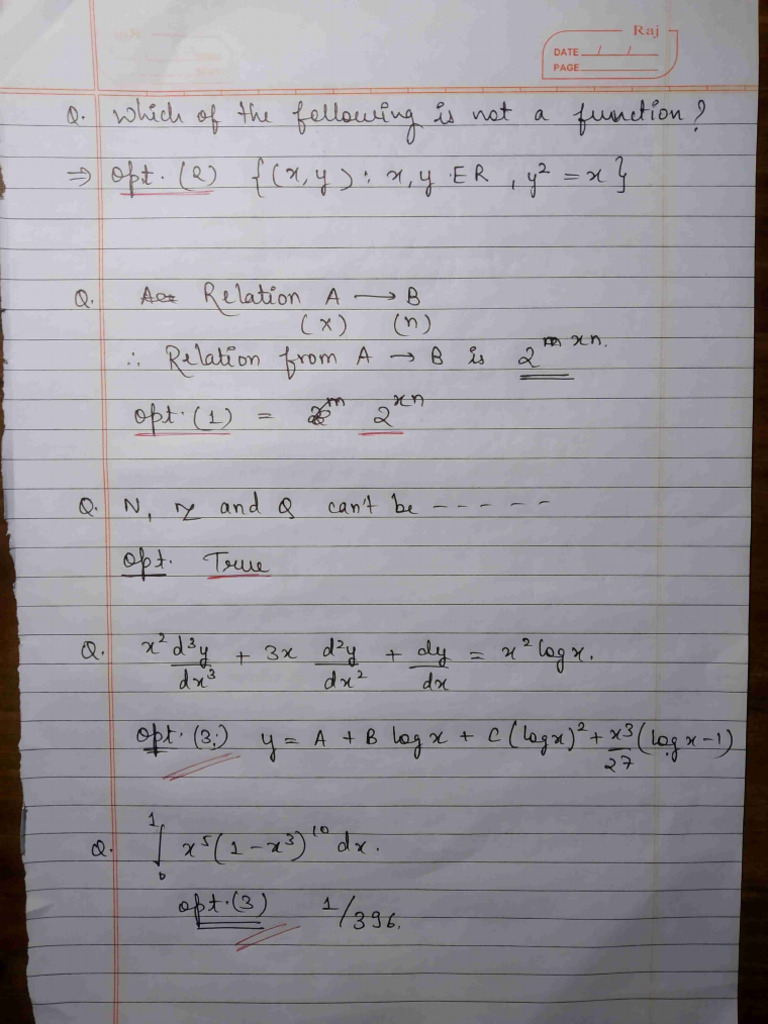 Raj
DATE / /
PAGE
Q. Which of the following is not a function?
⇒ Opt. (2) {(x, y) : x, y ∈ R, y² = x}
Q. Relation A → B
(x) (n)
∴ Relation from A → B is 2^(m xn).
Opt. (1) = 2^(xn)
Q. N, Z and Q can't be -----
Opt. True
Q. x² d³y/dx³ + 3x d²y/dx² + dy/dx = x² log x.
Opt. (3.) y = A + B log x + C (log x)² + x³/27 (log x - 1)
Q. ∫₀¹ x⁵(1 - x³)¹⁰ dx.
opt. (3) 1/396.